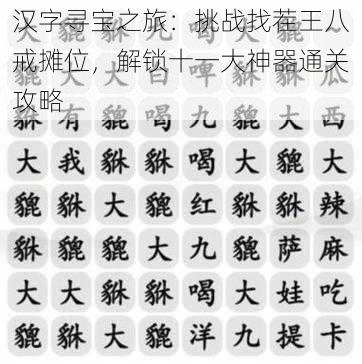 汉字寻宝之旅：挑战找茬王八
戒摊位，解锁十一大神器通关
攻略
貅有貔喝九貔大西
大我貅貅喝大貔大
貔貅大貔红貅貅辣
貅貔貔大九貔萨麻
大大貅貅喝大娃吃
貔貅大貔洋九提卡